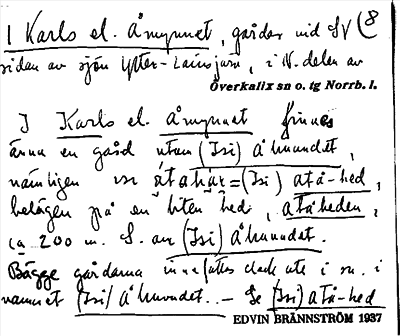 I Karls el. Åmynnet, gårdar vid SV (8
sidan av sjön Ytter-Lansjärv, i N. delen av
Överkalix sn o. tg Norrb. l.
I Karls el. Åmynnet finnes
ännu en gård utom (Isi) Åhuvudet,
nämligen (Isi) atå-hed,
belägen på en liten hed, atåheden,
ca 200 m. S. om (Isi) Åhuvudet.
Bägge gårdarna innefattes dock ute i sn. i
namnet (Isi) Åhuvudet. - Se (Isi) atå-hed
EDVIN BRÄNNSTRÖM 1937